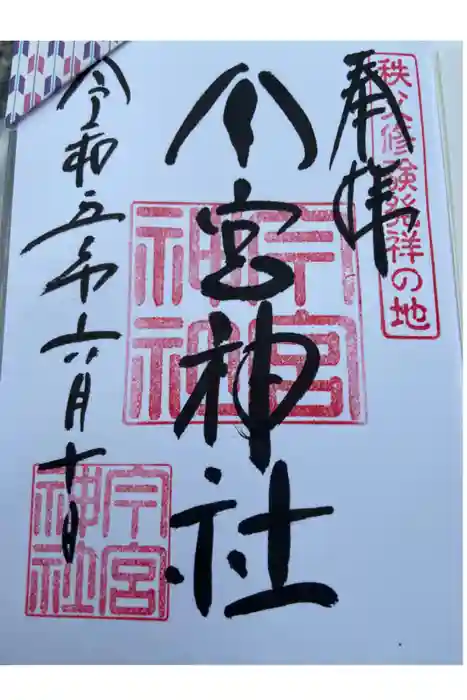 秩父修験発祥の地
奉拝
今宮神社
令和五年六月十日
今宮
神社